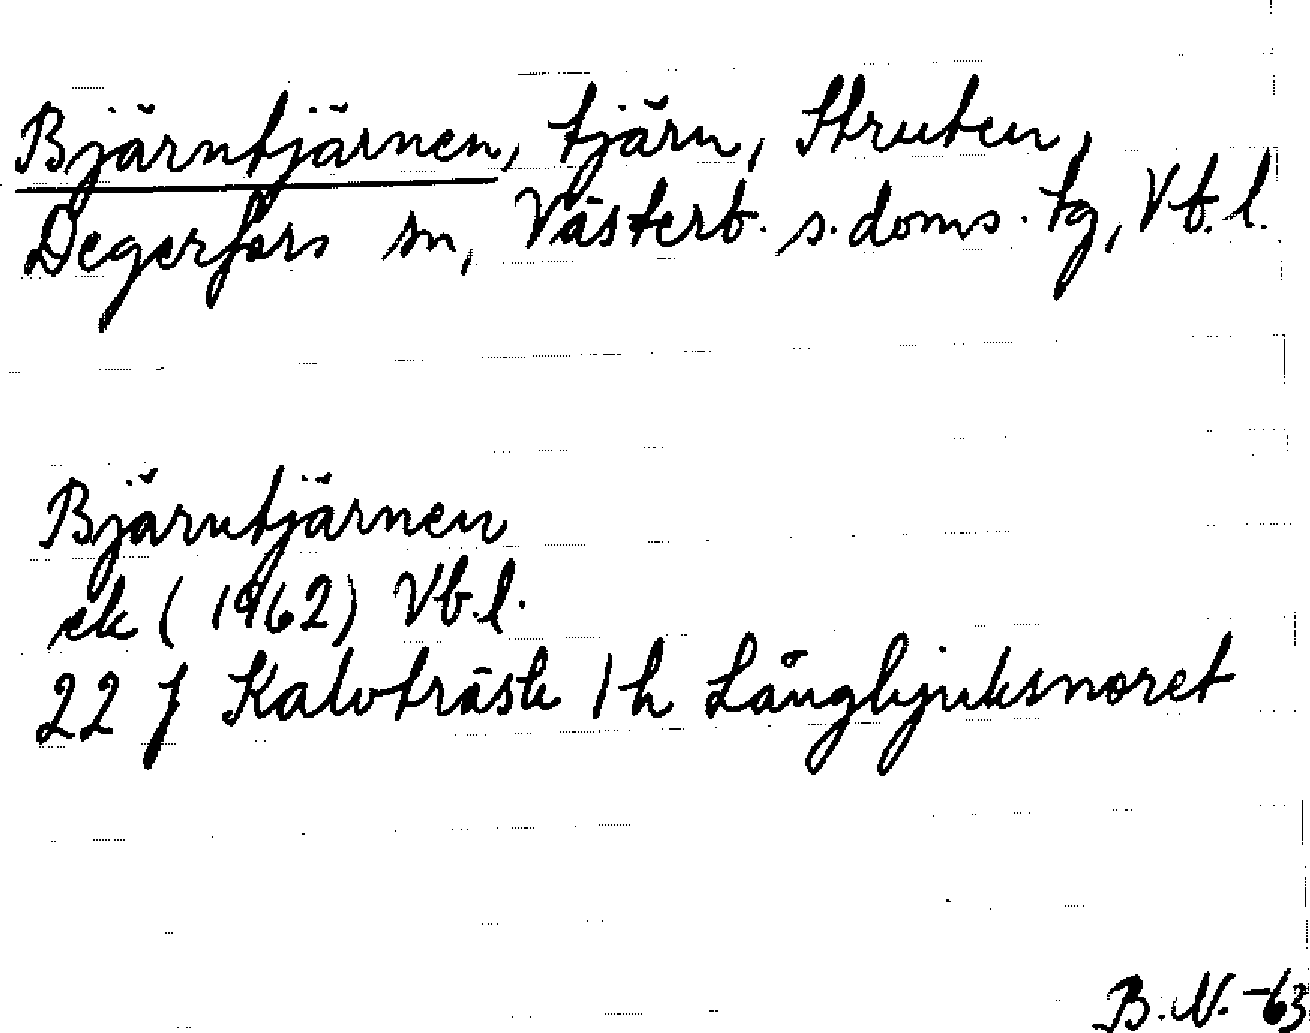 Bjärntjärnen, tjärn, Struten,
Degerfors sn, Västerb. s. doms. tg, Vb. l.
Bjärntjärnen
ek (1962) Vb. l.
22 J Kalvträsk 1 h Långbjuksnoret
B. N. -63